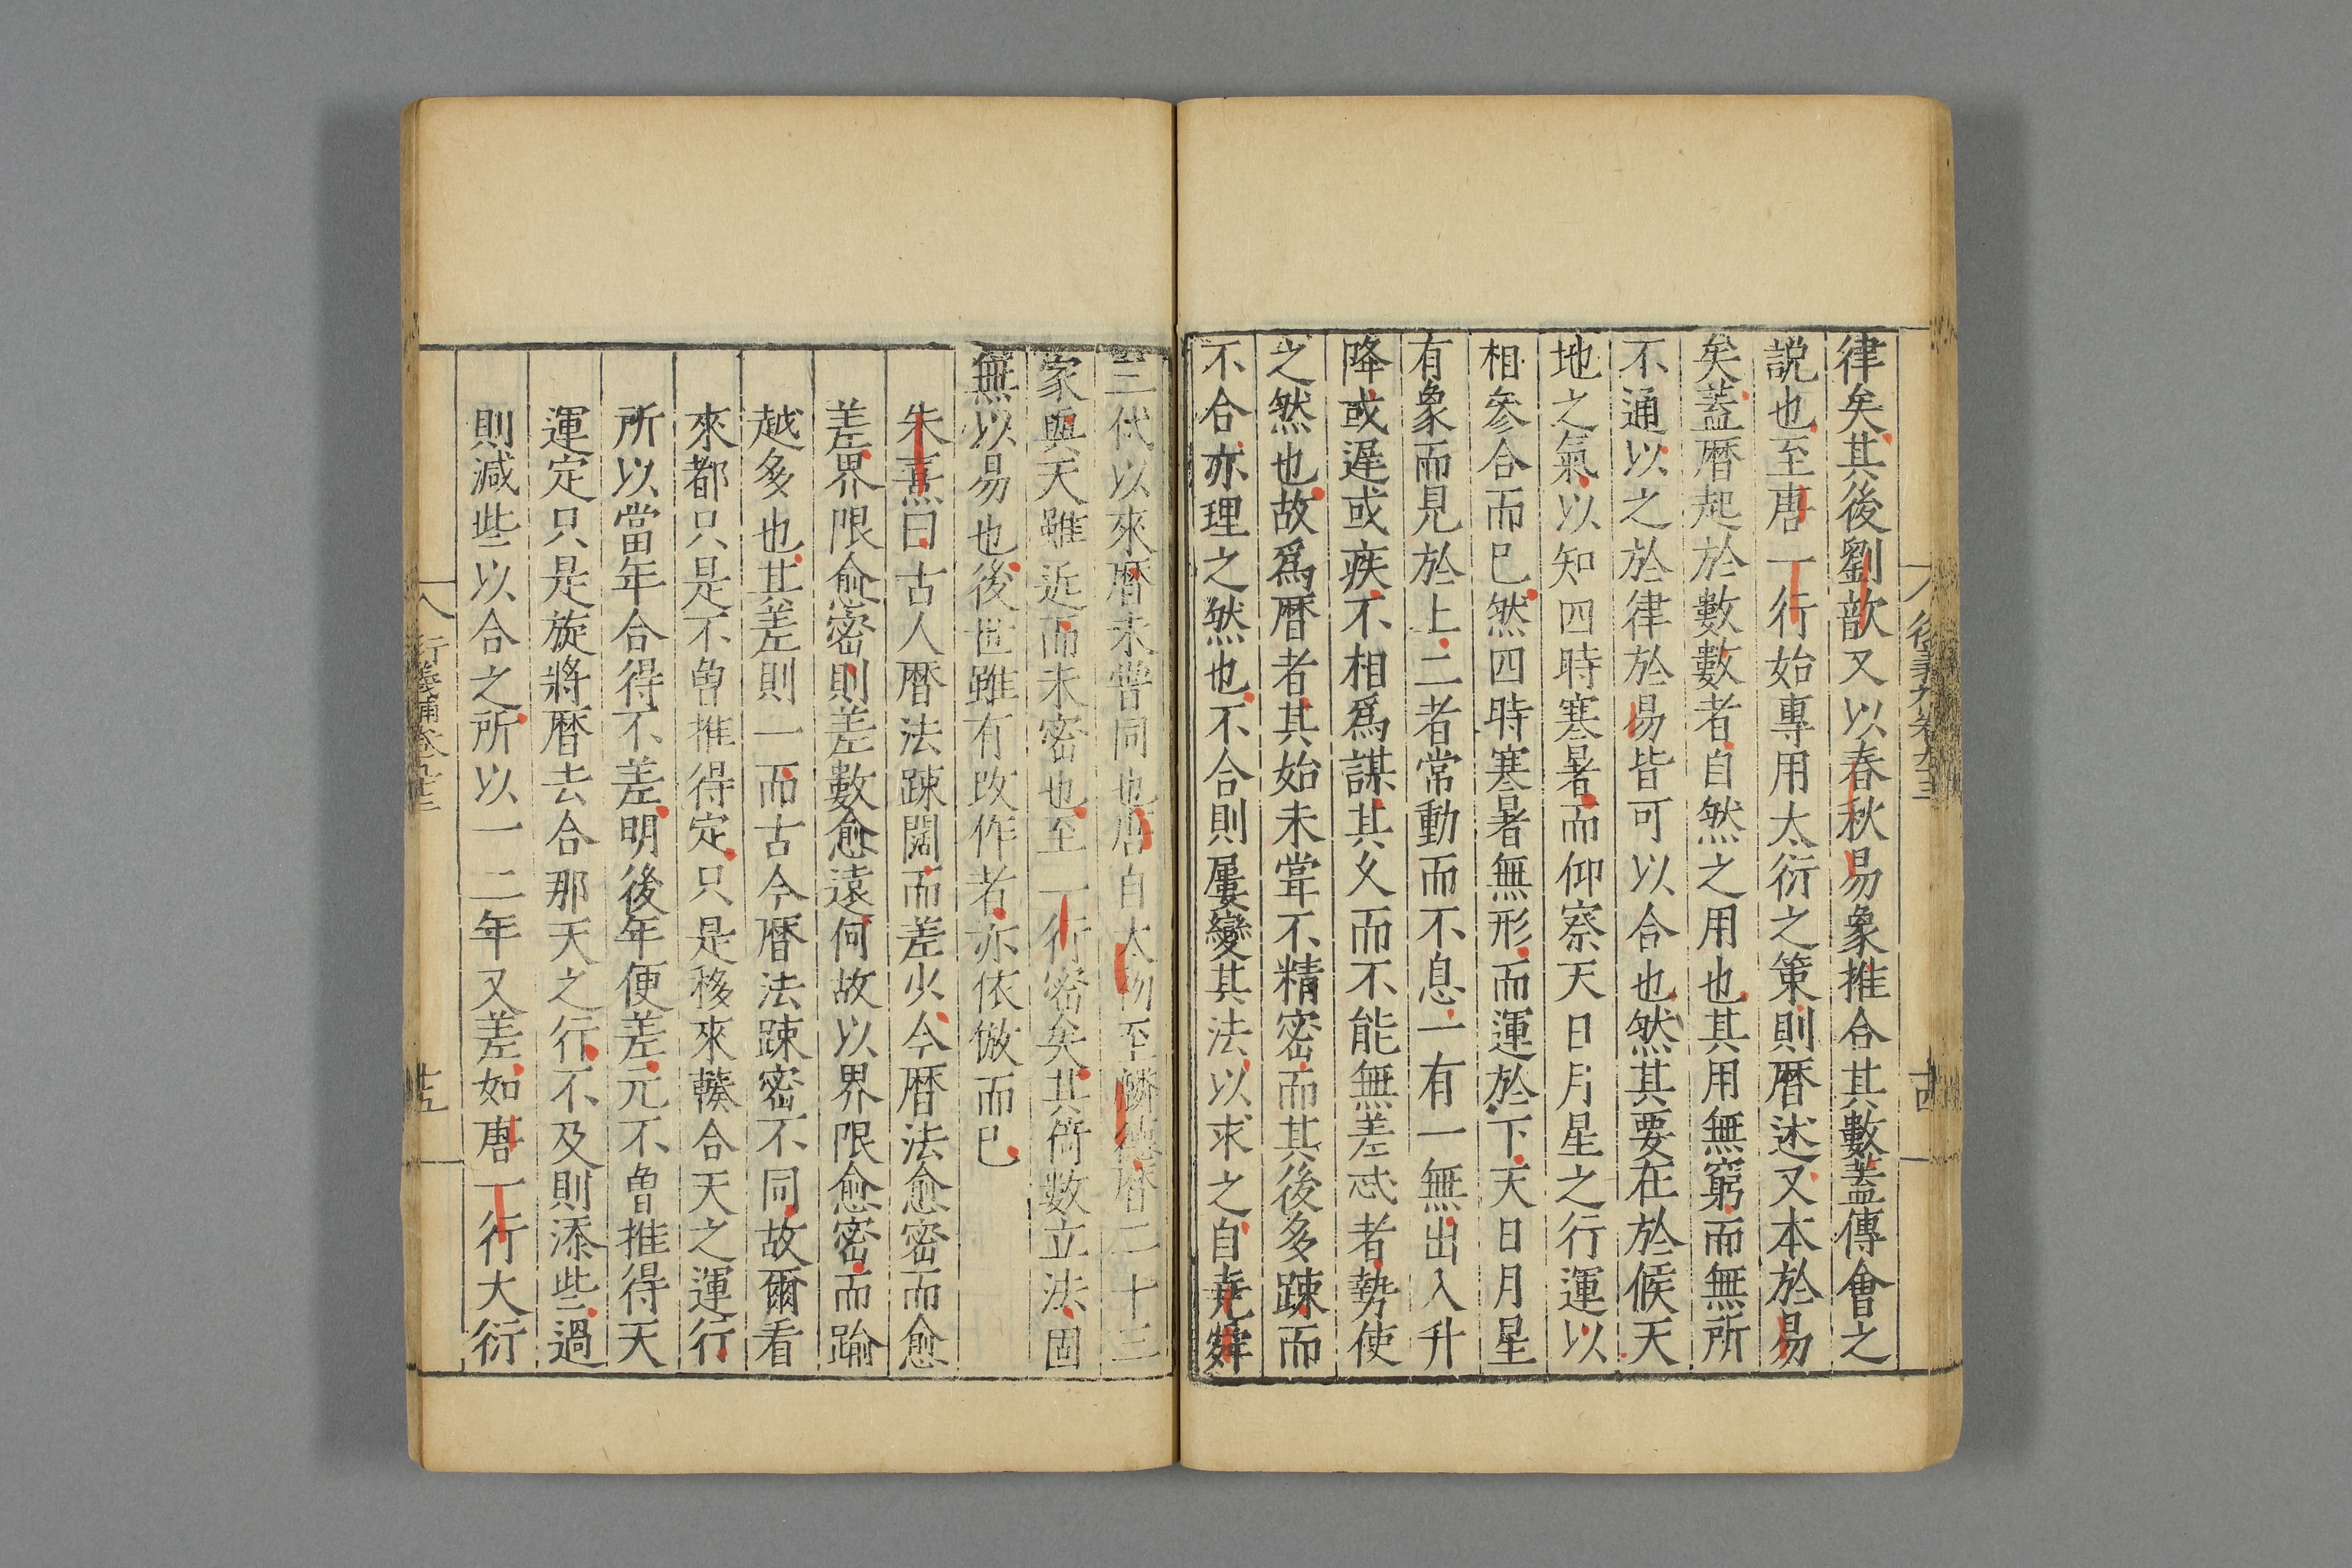 律矣其後劉歆又以春秋易象推合其數蓋傳會之
説也至唐一行始專用大衍之策則曆述又本於易
矣蓋曆起於數數者自然之用也其用無窮而無所
不通以之於律於易皆可以合也然其要在於候天
地之氣以知四時寒暑而仰察天日月星之行運以
相參合而已然四時寒暑無形而運於下天日月星
有象而見於上二者常動而不息一有一無出入升
降或遲或疾不相爲謀其久而不能無差忒者勢使
之然也故爲曆者其始未甞不精密而其後多踈而
不合亦理之然也不合則屢變其法以求之自堯舜
三代以來曆未甞同也唐自太初至麟德曆二十三
家與天雖近而未密也至一行密矣其倚數立法固
無以易也後世雖有改作者亦依倣而已
朱熹曰古人曆法踈闊而差少今曆法愈密而愈
差界限愈密則差數愈遠何故以界限愈密而踰
越多也其差則一而古今曆法踈密不同故爾看
來都只是不曾推得定只是移來輳合天之運行
所以當年合得不差明後年便差元不曾推得天
運定只是旋將曆去合那天之行不及則添些過
則減些以合之所以一二年又差如唐一行大衍
行義補卷九十三
十五
十四